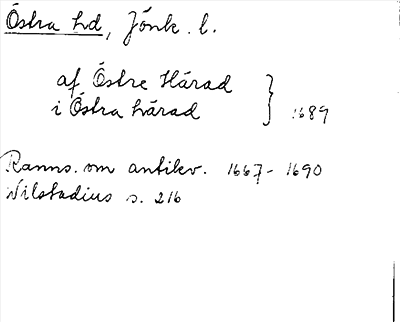 Östra hd, Jönk. l.
af Östre Härad
i Östra härad } 1689
Ranns. om antikv. 1667-1690
Wilstadius s. 216